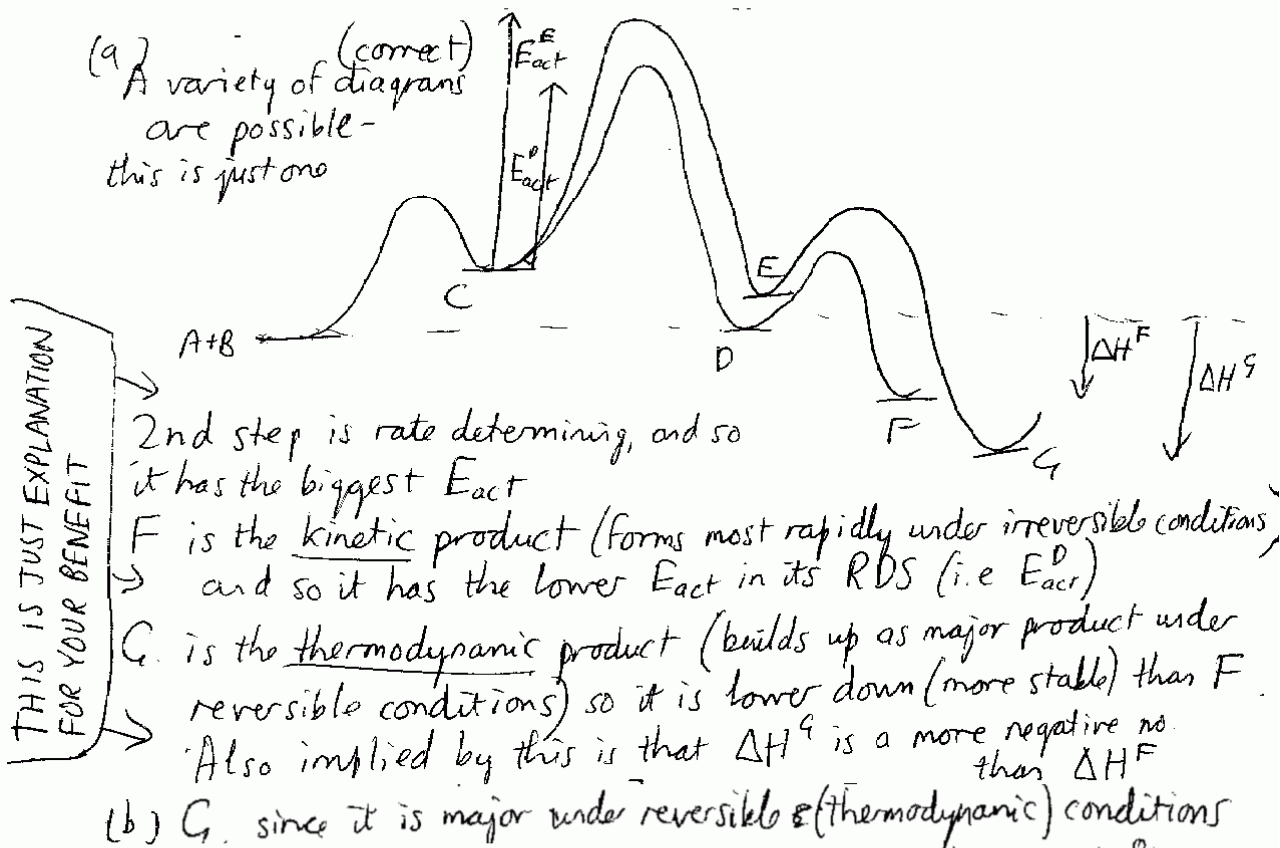 (a) (correct)
A variety of diagrams
are possible -
this is just one
E^E_act
E^D_act
C
A+B
E
D
F
G
ΔH^F
ΔH^G
THIS IS JUST EXPLANATION
FOR YOUR BENEFIT
2nd step is rate determining, and so
it has the biggest Eact
F is the kinetic product (forms most rapidly under irreversible conditions)
and so it has the lower Eact in its RDS (i.e E^D_act)
G. is the thermodynamic product (builds up as major product under
reversible conditions) so it is lower down (more stable) than F.
Also implied by this is that ΔH^G is a more negative no.
than ΔH^F
(b) G. since it is major under reversible (thermodynamic) conditions